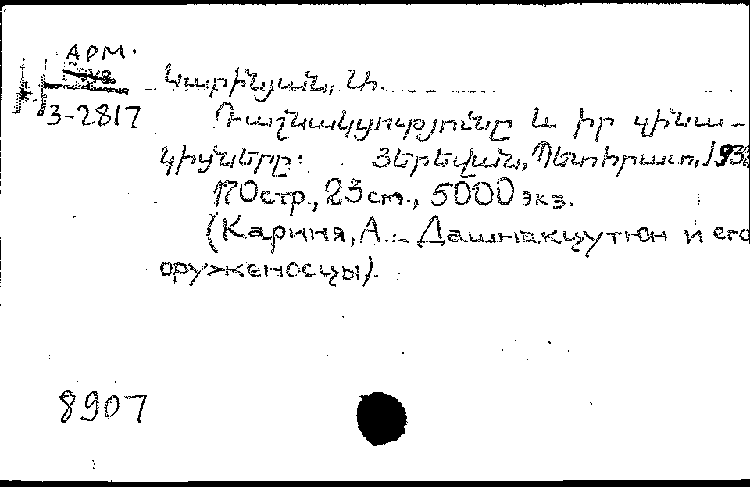 АРМ.
3-2817
Կարինյան, Ա.
Դաշնակցությունը և իր զինա-
կիցները: Յերեվան, Պետհրատ, 193
170 стр., 23 cm., 5000 экз.
(Кариня, А. - Дашнакцутюн и его
оруженосцы).
8907